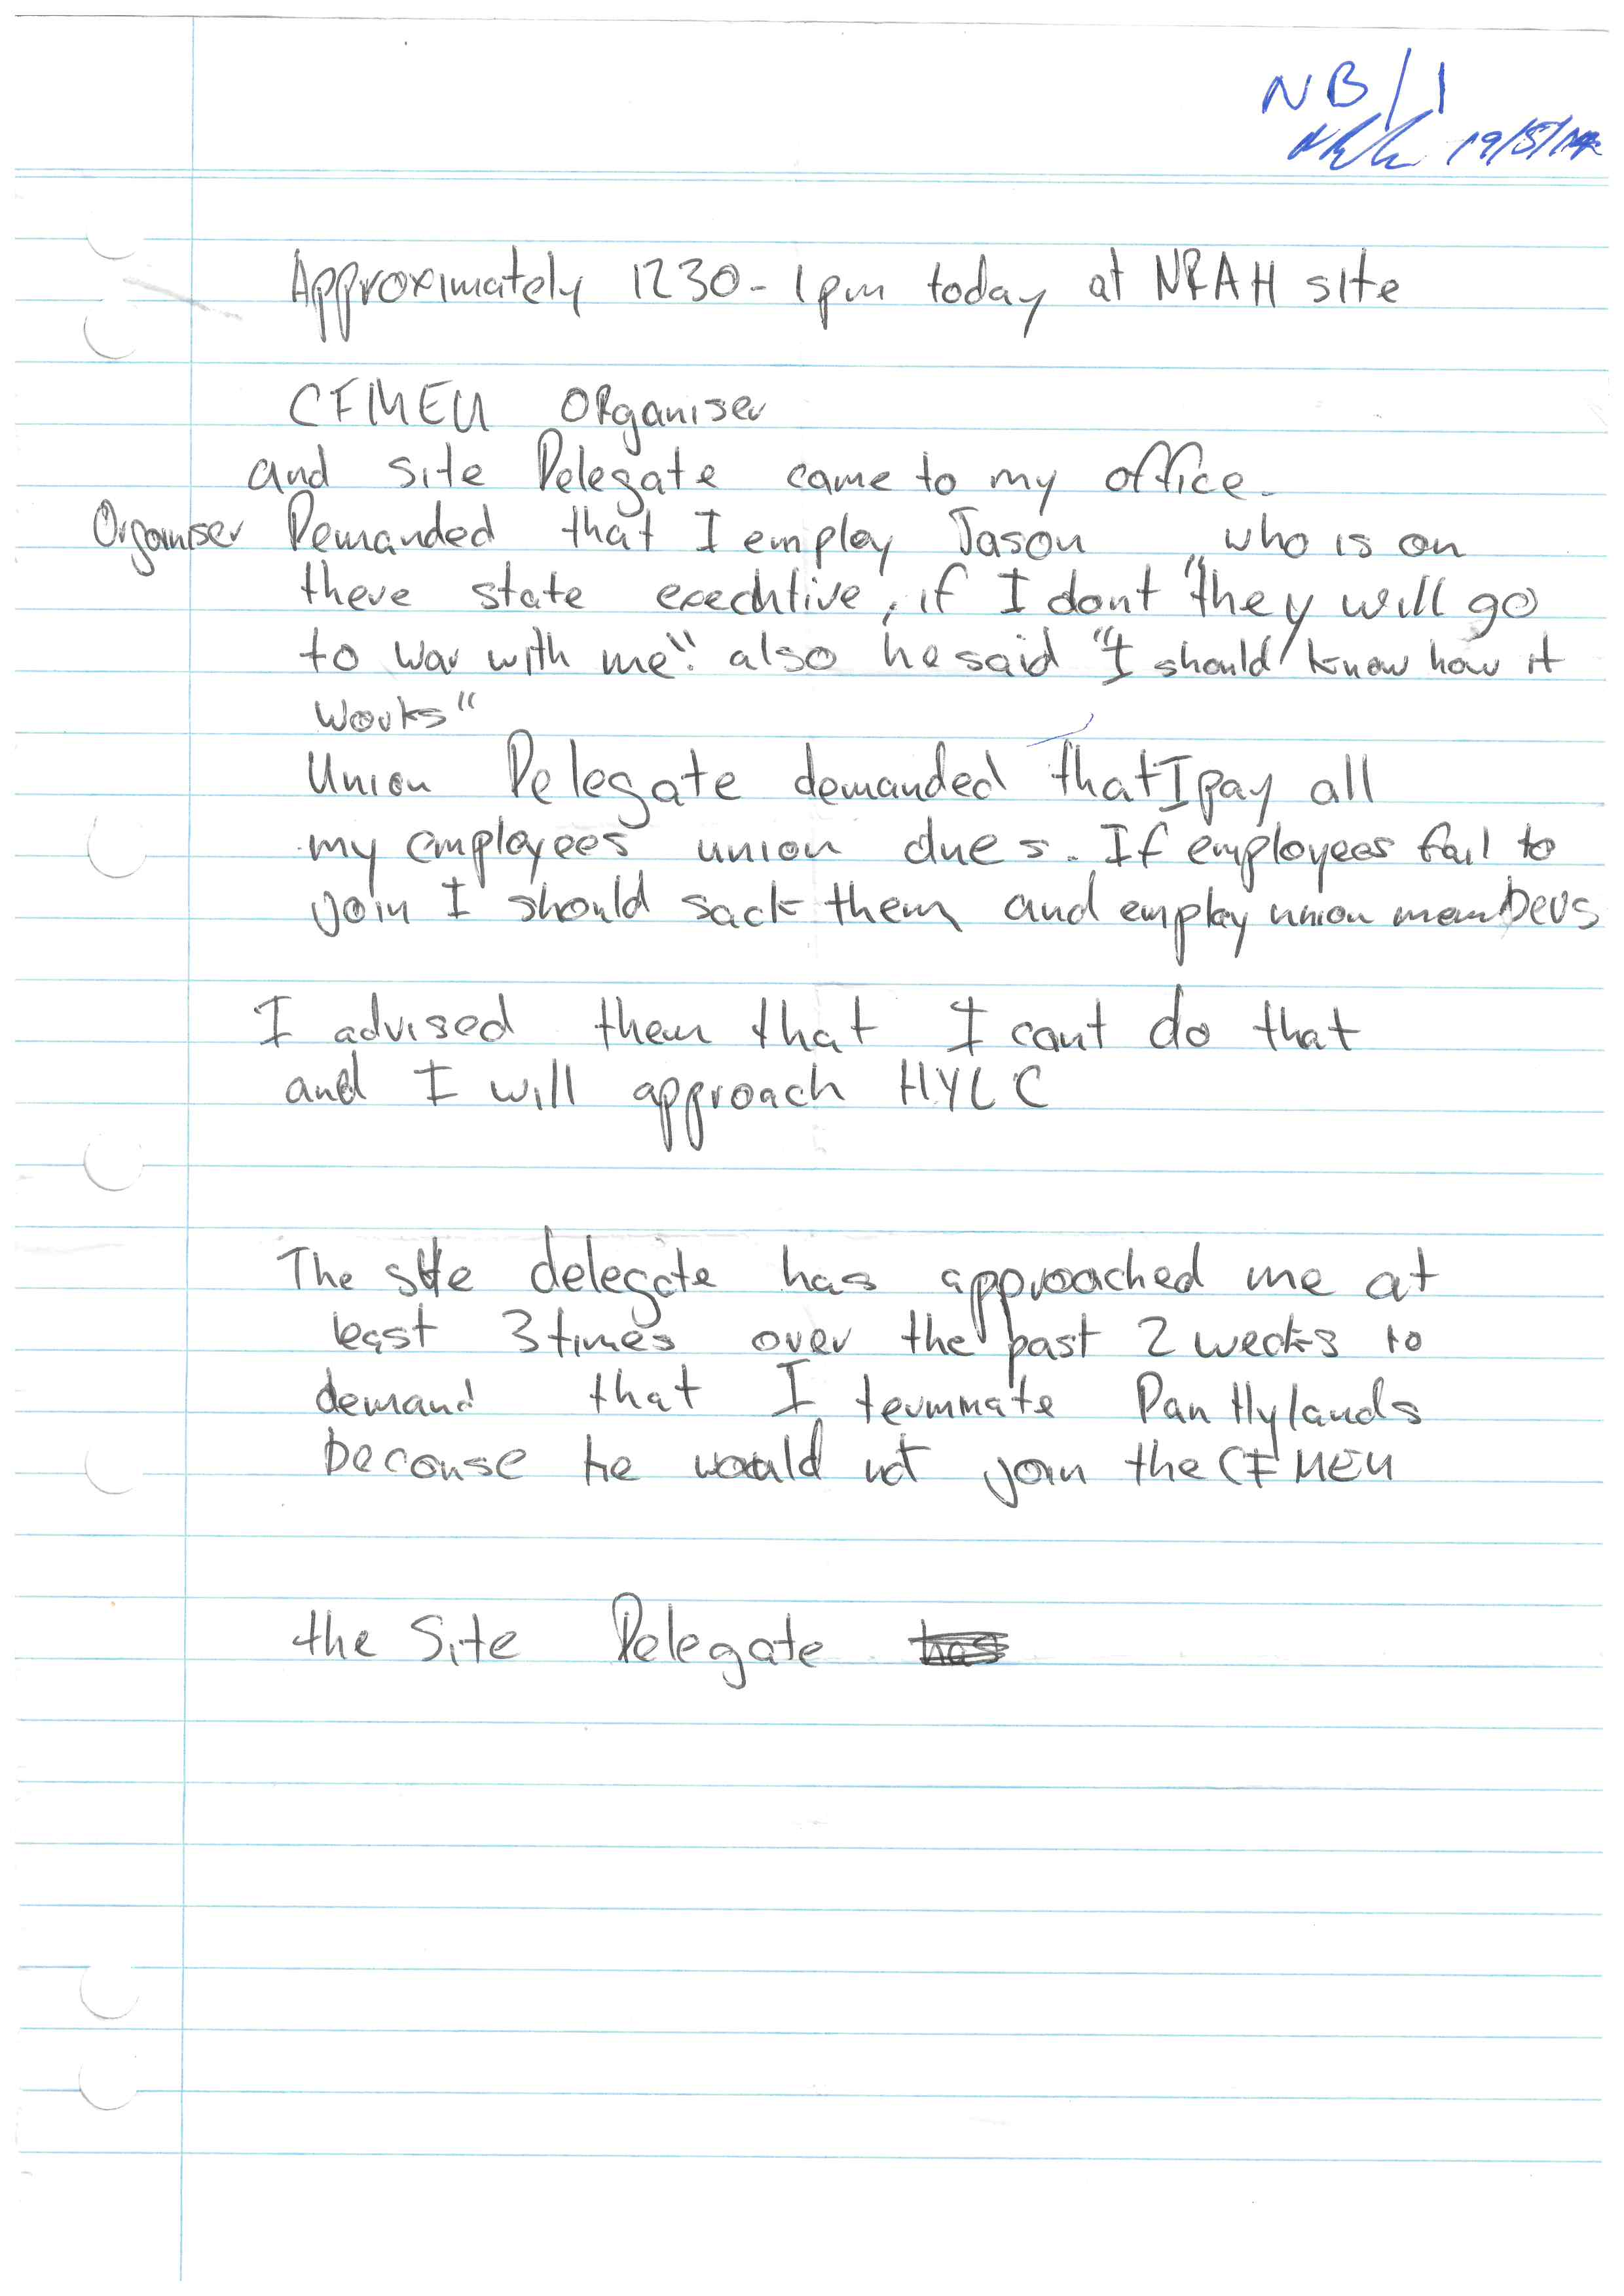 NB/1
19/5/14
Approximately 1230 - 1pm today at NRAH site
CFMEU ORganiser
and site Delegate came to my office.
Organiser Demanded that I employ Jason who is on
there state execHtive, if I dont "they will go
to war with me". also he said "I should know how it
works"
Union Delegate demanded that I pay all
my employees union dues. If employees fail to
join I should sack them and employ union members
I advised them that I cant do that
and I will approach HYLC
The site delegate has approached me at
least 3 times over the past 2 weeks to
demand that I terminate Dan Hylands
because he would not join the CFMEU
the Site Delegate has